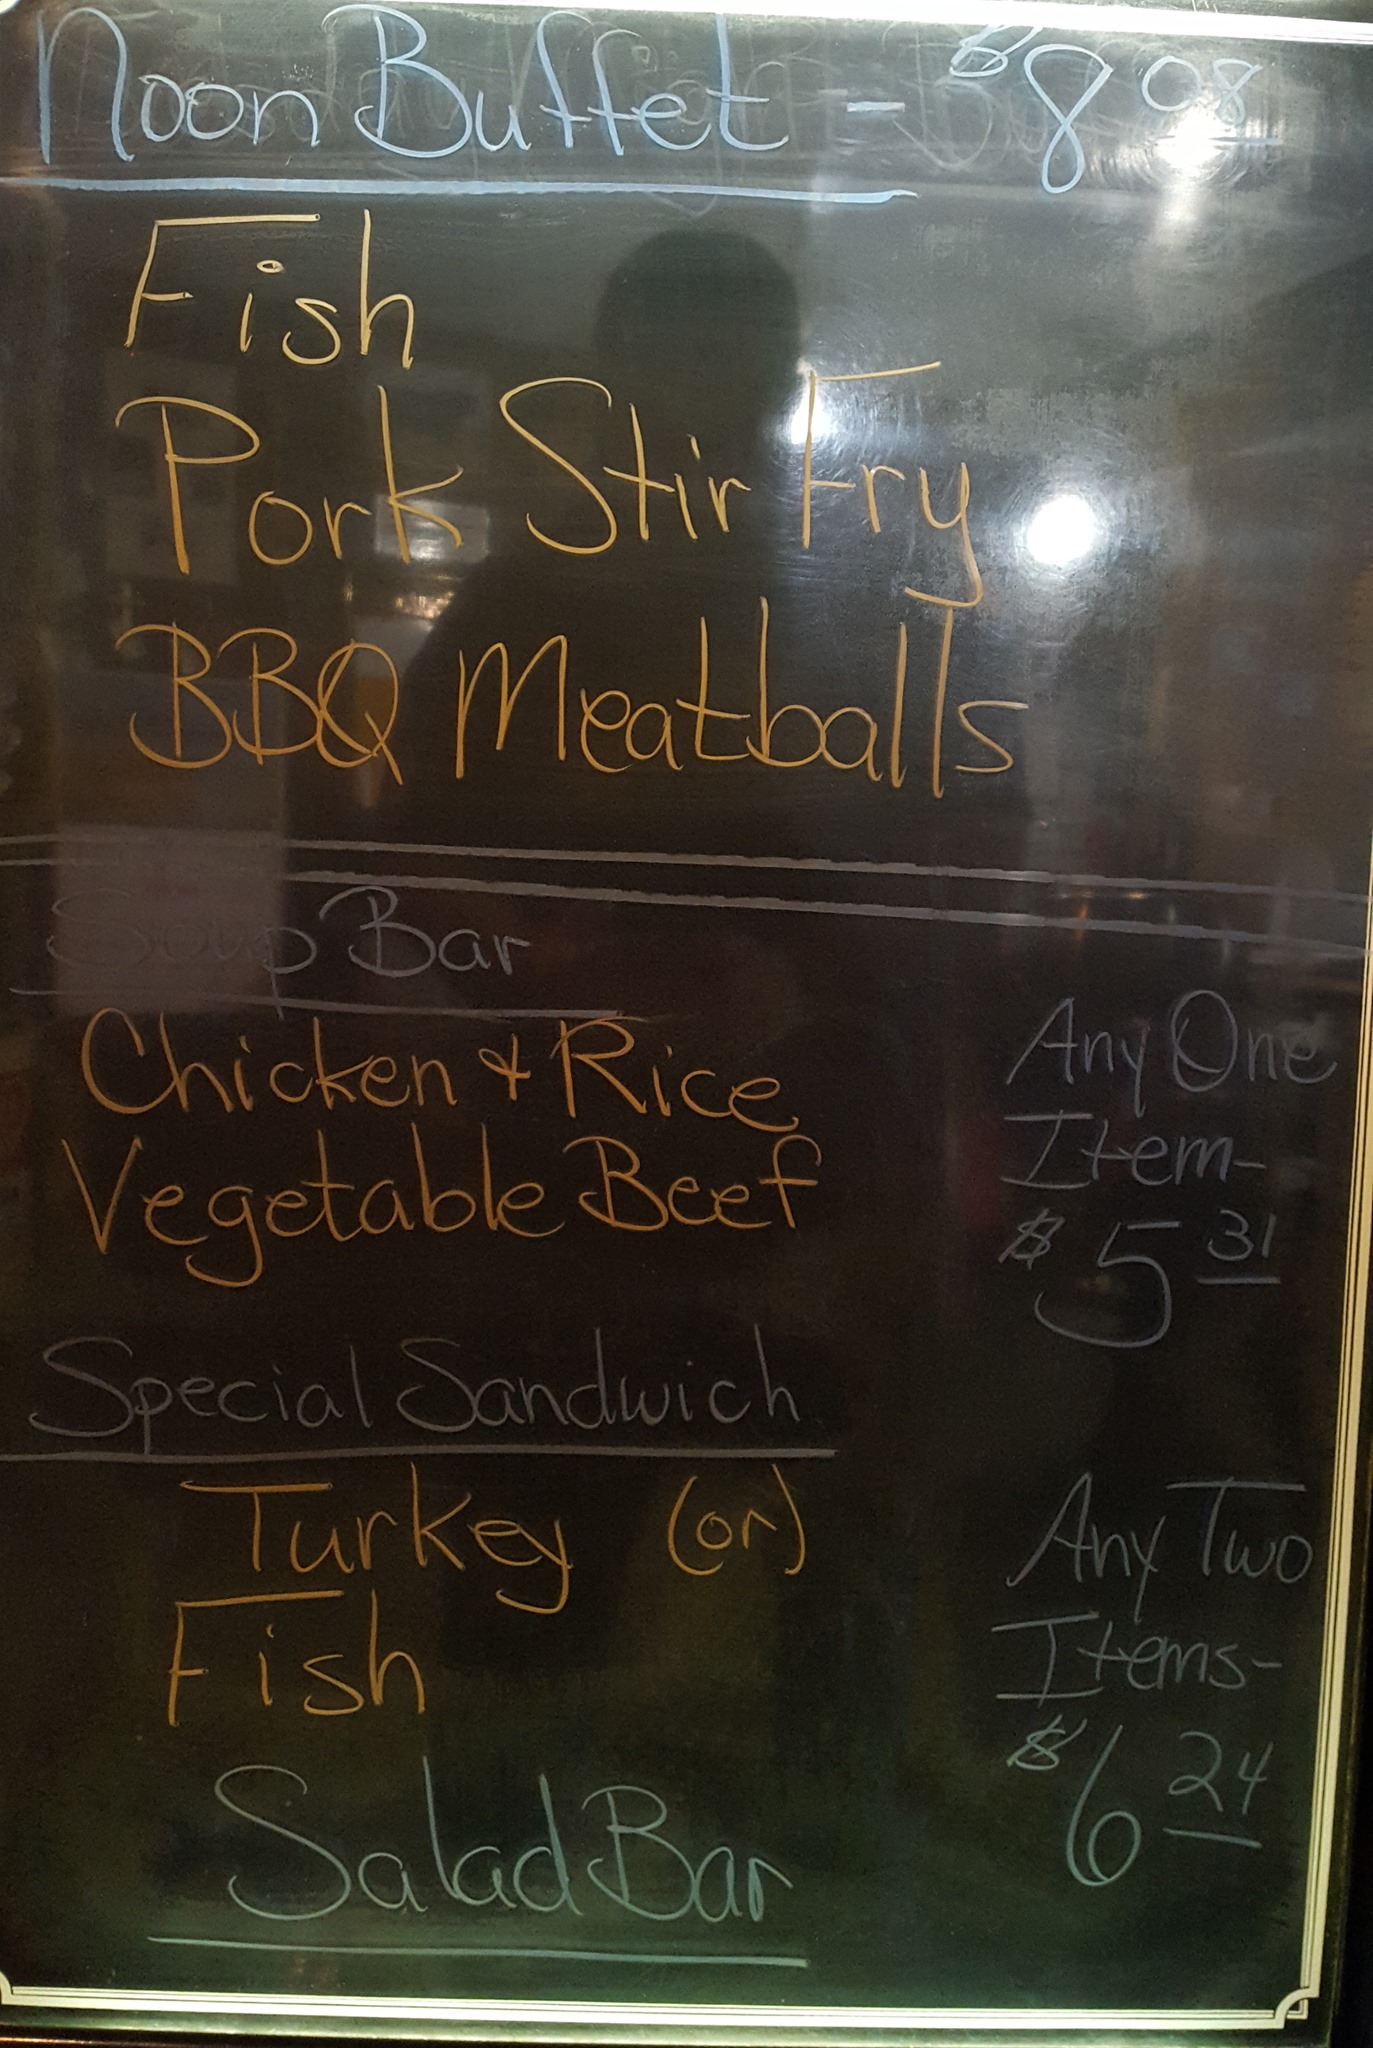 Noon Buffet - $8 08
Fish
Pork Stir Fry
BBQ Meatballs
Soup Bar
Chicken & Rice
Vegetable Beef
Any One
Item-
$5 31
Special Sandwich
Turkey (or)
Fish
Any Two
Items-
$6 24
Salad Bar